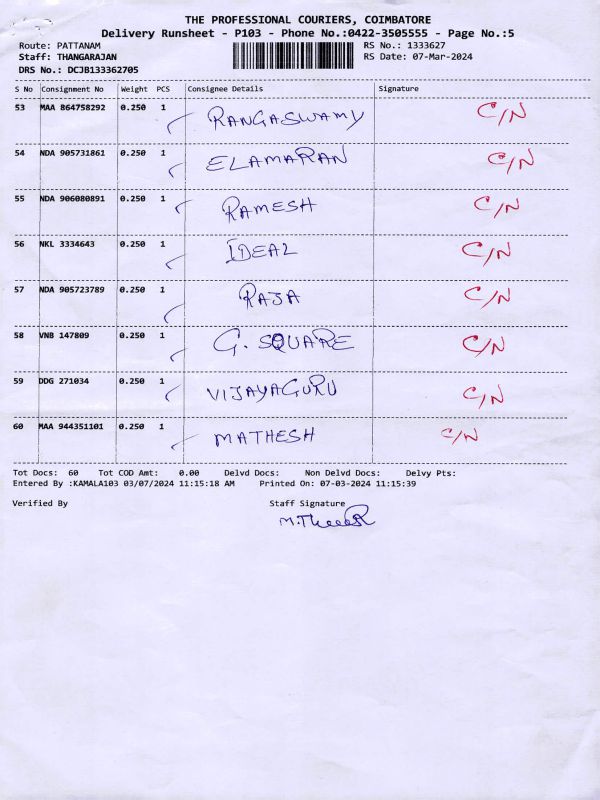 THE PROFESSIONAL COURIERS, COIMBATORE
Delivery Runsheet - P103 - Phone No.:0422-3505555 - Page No.:5
Route: PATTANAM RS No.: 1333627
Staff: THANGARAJAN RS Date: 07-Mar-2024
DRS No.: DCJB133362705
S No Consignment No Weight PCS Consignee Details Signature
53 MAA 864758292 0.250 1 RANGASWAMY C/N
54 NDA 905731861 0.250 1 ELAMARAN C/N
55 NDA 906080891 0.250 1 RAMESH C/N
56 NKL 3334643 0.250 1 IDEAL C/N
57 NDA 905723789 0.250 1 RAJA C/N
58 VNB 147809 0.250 1 G. SQUARE C/N
59 DDG 271034 0.250 1 VIJAYAGURU C/N
60 MAA 944351101 0.250 1 MATHESH C/N
Tot Docs: 60 Tot COD Amt: 0.00 Delvd Docs: Non Delvd Docs: Delvy Pts:
Entered By :KAMALA103 03/07/2024 11:15:18 AM Printed On: 07-03-2024 11:15:39
Verified By Staff Signature